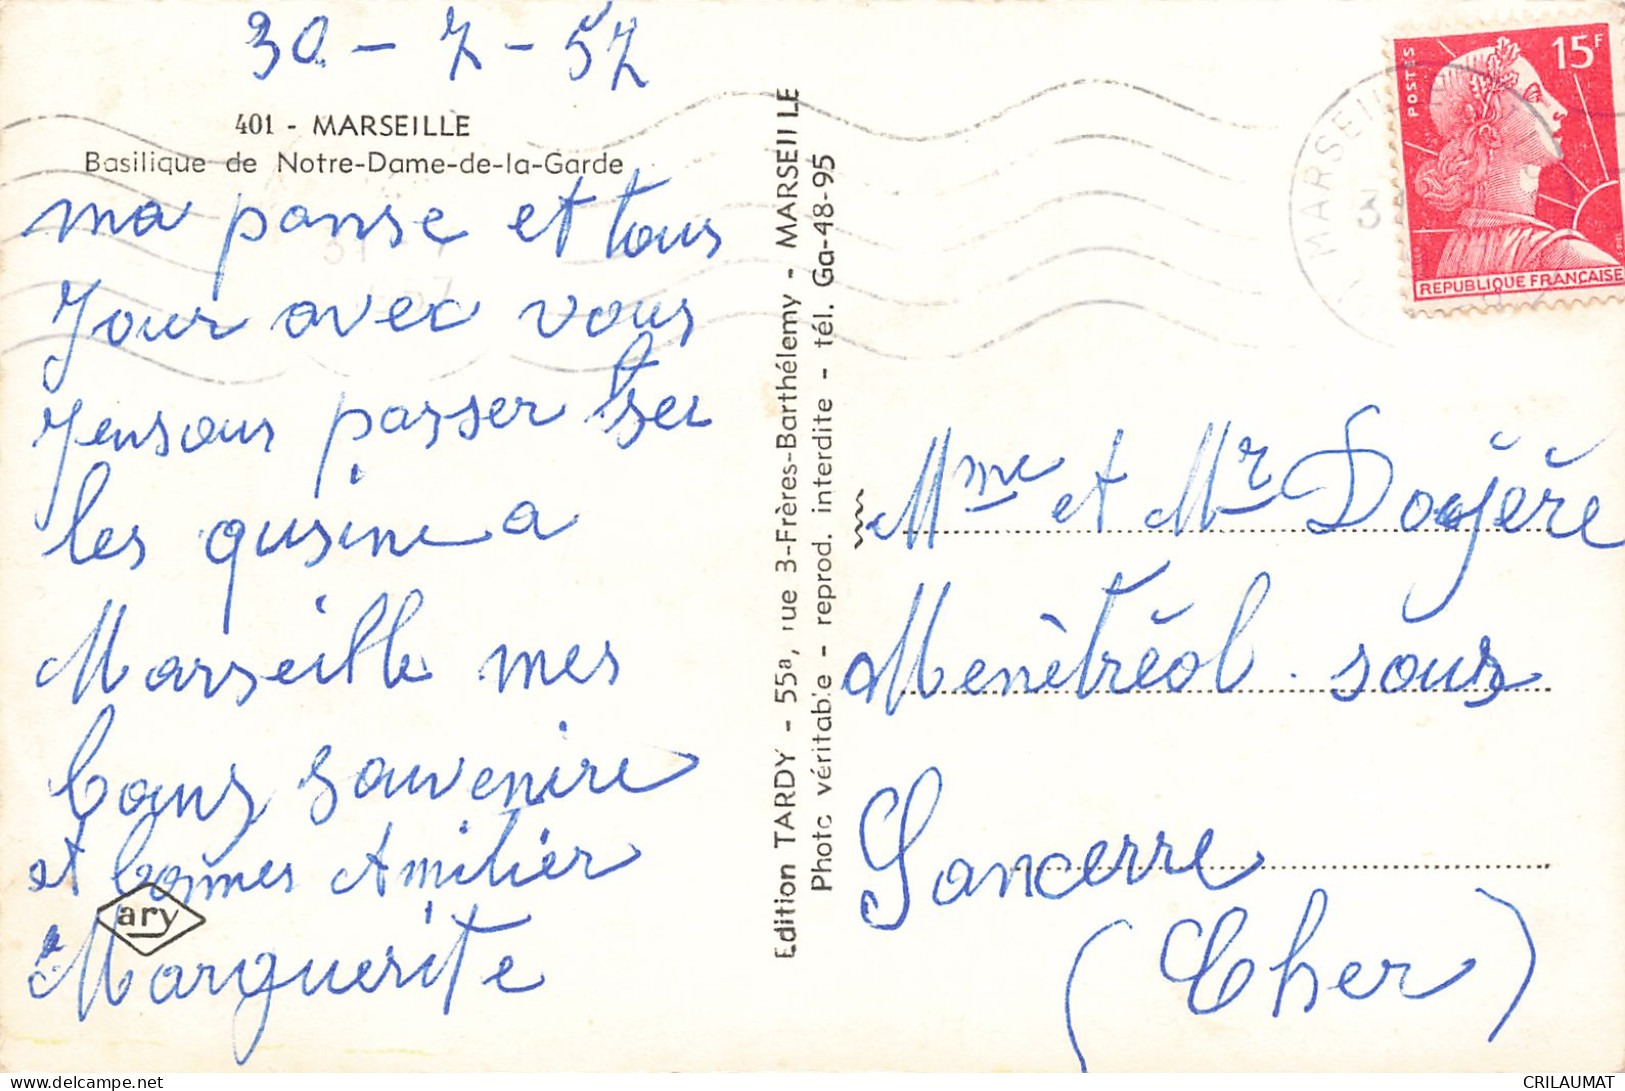 30 - 7 - 57
401 - MARSEILLE
Basilique de Notre-Dame-de-la-Garde
ma panse et tous
Jour avec vous
passer
les qusine a
Marseille mes
bons souvenire
et bonnes Amitier
Marguerite
ary
Edition TARDY - 55a, rue 3-Frères-Barthélemy - MARSEILLE
Photo véritable - reprod. interdite - tél. Ga-48-95
POSTES
15F
REPUBLIQUE FRANÇAISE
MARSEILLE
Mme et Mr Doujère
Menètréol sous
Sancerre
(Cher)
CRILAUMAT